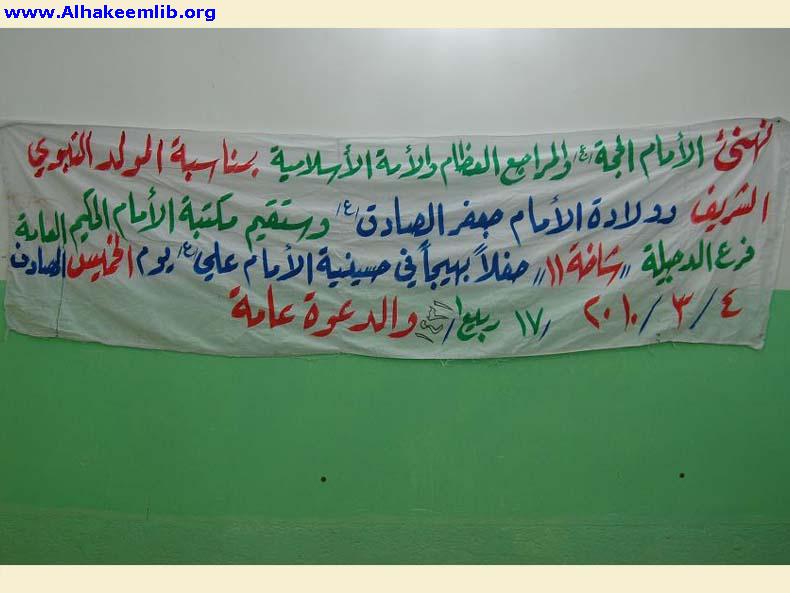 www.Alhakeemlib.org
نهنئ الأمام الحجة /ع/ والمراجع العظام والأمة الأسلامية بمناسبة المولد النبوي
الشريف وولادة الأمام جعفر الصادق /ع/ وستقيم مكتبة الأمام الحكيم العامة
فرع الدجيلة ,,شاخة ١١,, حفلاً بهيجاً في حسينية الأمام علي /ع/ يوم الخميس الصادف
٤ / ٣ / ٢٠١٠ / ١٧ ربيع١ / والدعوة عامة